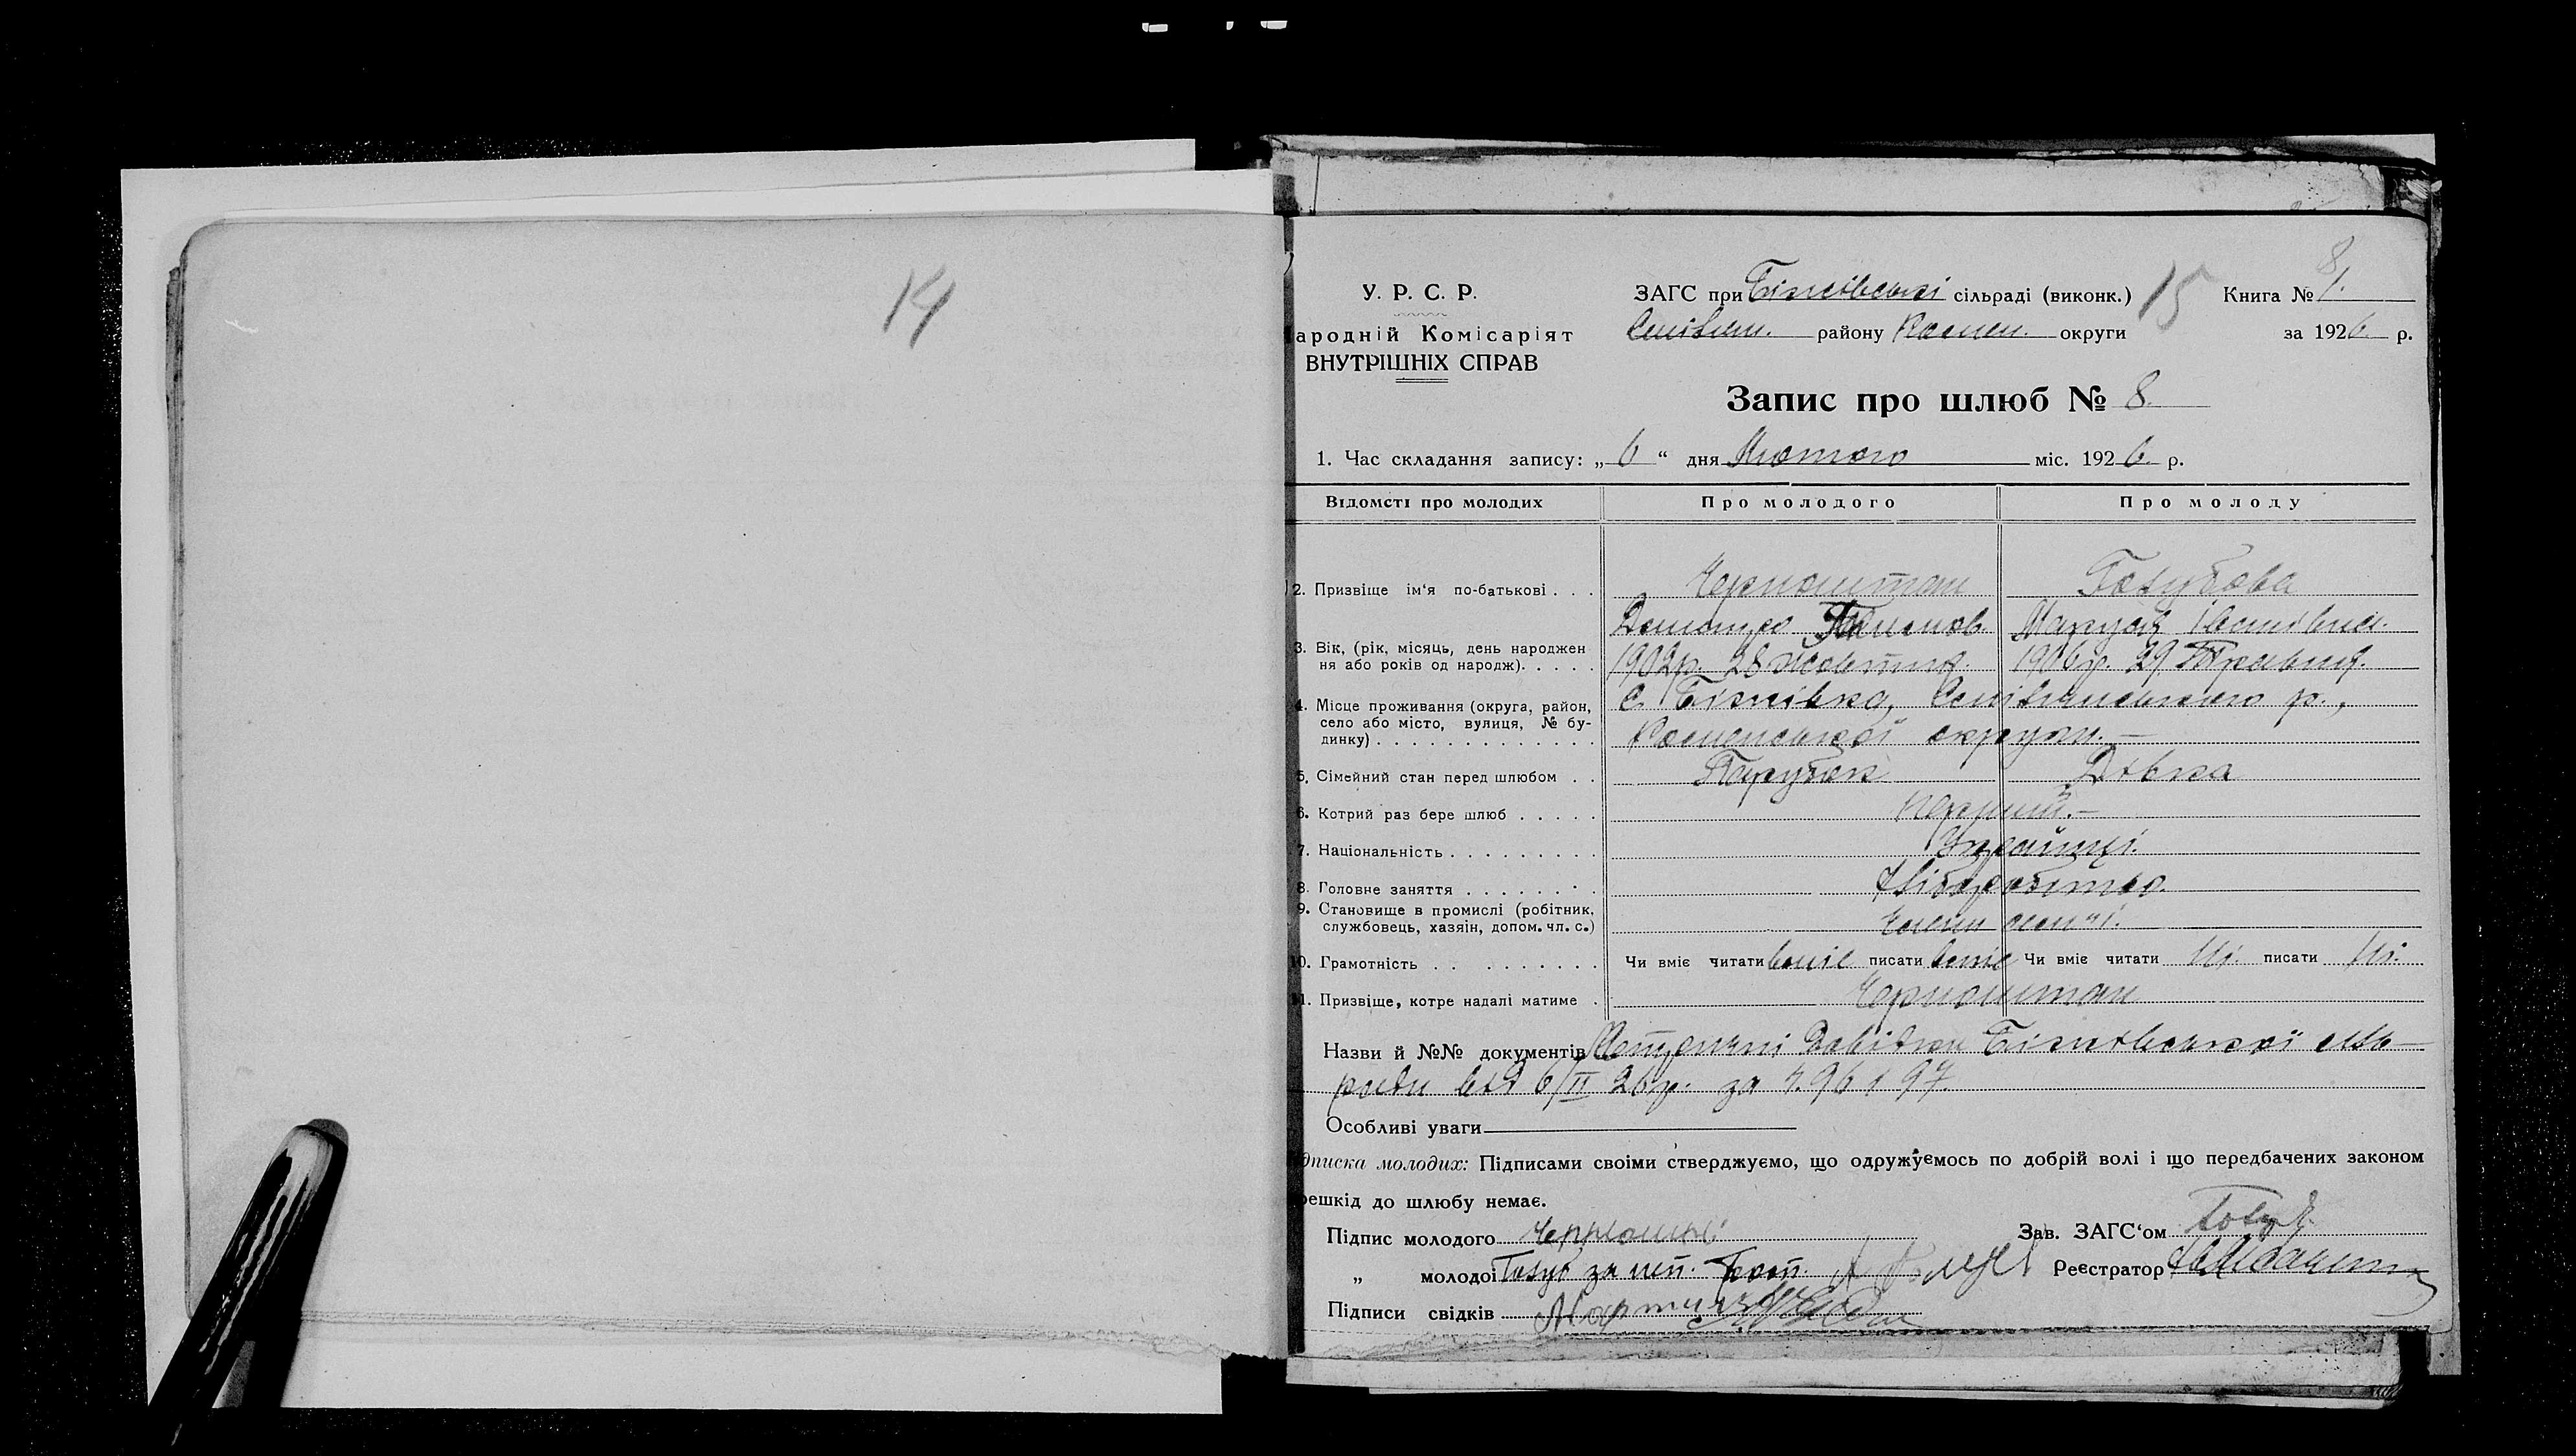 14
У. Р. С. Р.
ародній Комісаріят
ВНУТРІШНІХ СПРАВ
ЗАГС при Біжівські сільраді (виконк.) 15 Книга № 1. 8
району Ромен. округи за 1926 р.
Запис про шлюб № 8.
1. Час складання запису: „ 6 “ дня Лютого міс. 1926 р.
Відомсті про молодих Про молодого Про молоду
2. Призвіще ім‘я по-батькові . . . Чорноштан Голубова
Маруся Івановна.
3. Вік, (рік, місяць, день народжен
ня або років од народж). . . . . 1902р. 28 жовтня. 1906р. 29 Травня.
4. Місце проживання (округа, район,
село або місто, вулиця, № бу-
динку) . . . . . . . . . . . . . с. Біжівка, р.,
Роменської округи. —
5. Сімейний стан перед шлюбом . . Парубок Дівка
6. Котрий раз бере шлюб . . . . . перший. —
7. Національність . . . . . . . . . Українці.
8. Головне заняття . . . . . . . . Хліборобство.
9. Становище в промислі (робітник,
службовець, хазяін, допом. чл. с.) Члени сем'ї.
10. Грамотність . . . . . . . . . Чи вміє читати вміє писати вміє Чи вміє читати Ні. писати Ні.
11. Призвіще, котре надалі матиме . Чорноштан
Назви й №№ документів Довідки Біжівської сіль-
ради від 6/II 26р. за ч. 96 і 97.
Особливі уваги
дписка молодих: Підписами своіми стверджуємо, що одружуємось по добрій волі і що передбачених законом
решкід до шлюбу немає.
Підпис молодого Зав. ЗАГС‘ом Голуб
„ молодоі Голуб за неп. Реєстратор
Підписи свідків